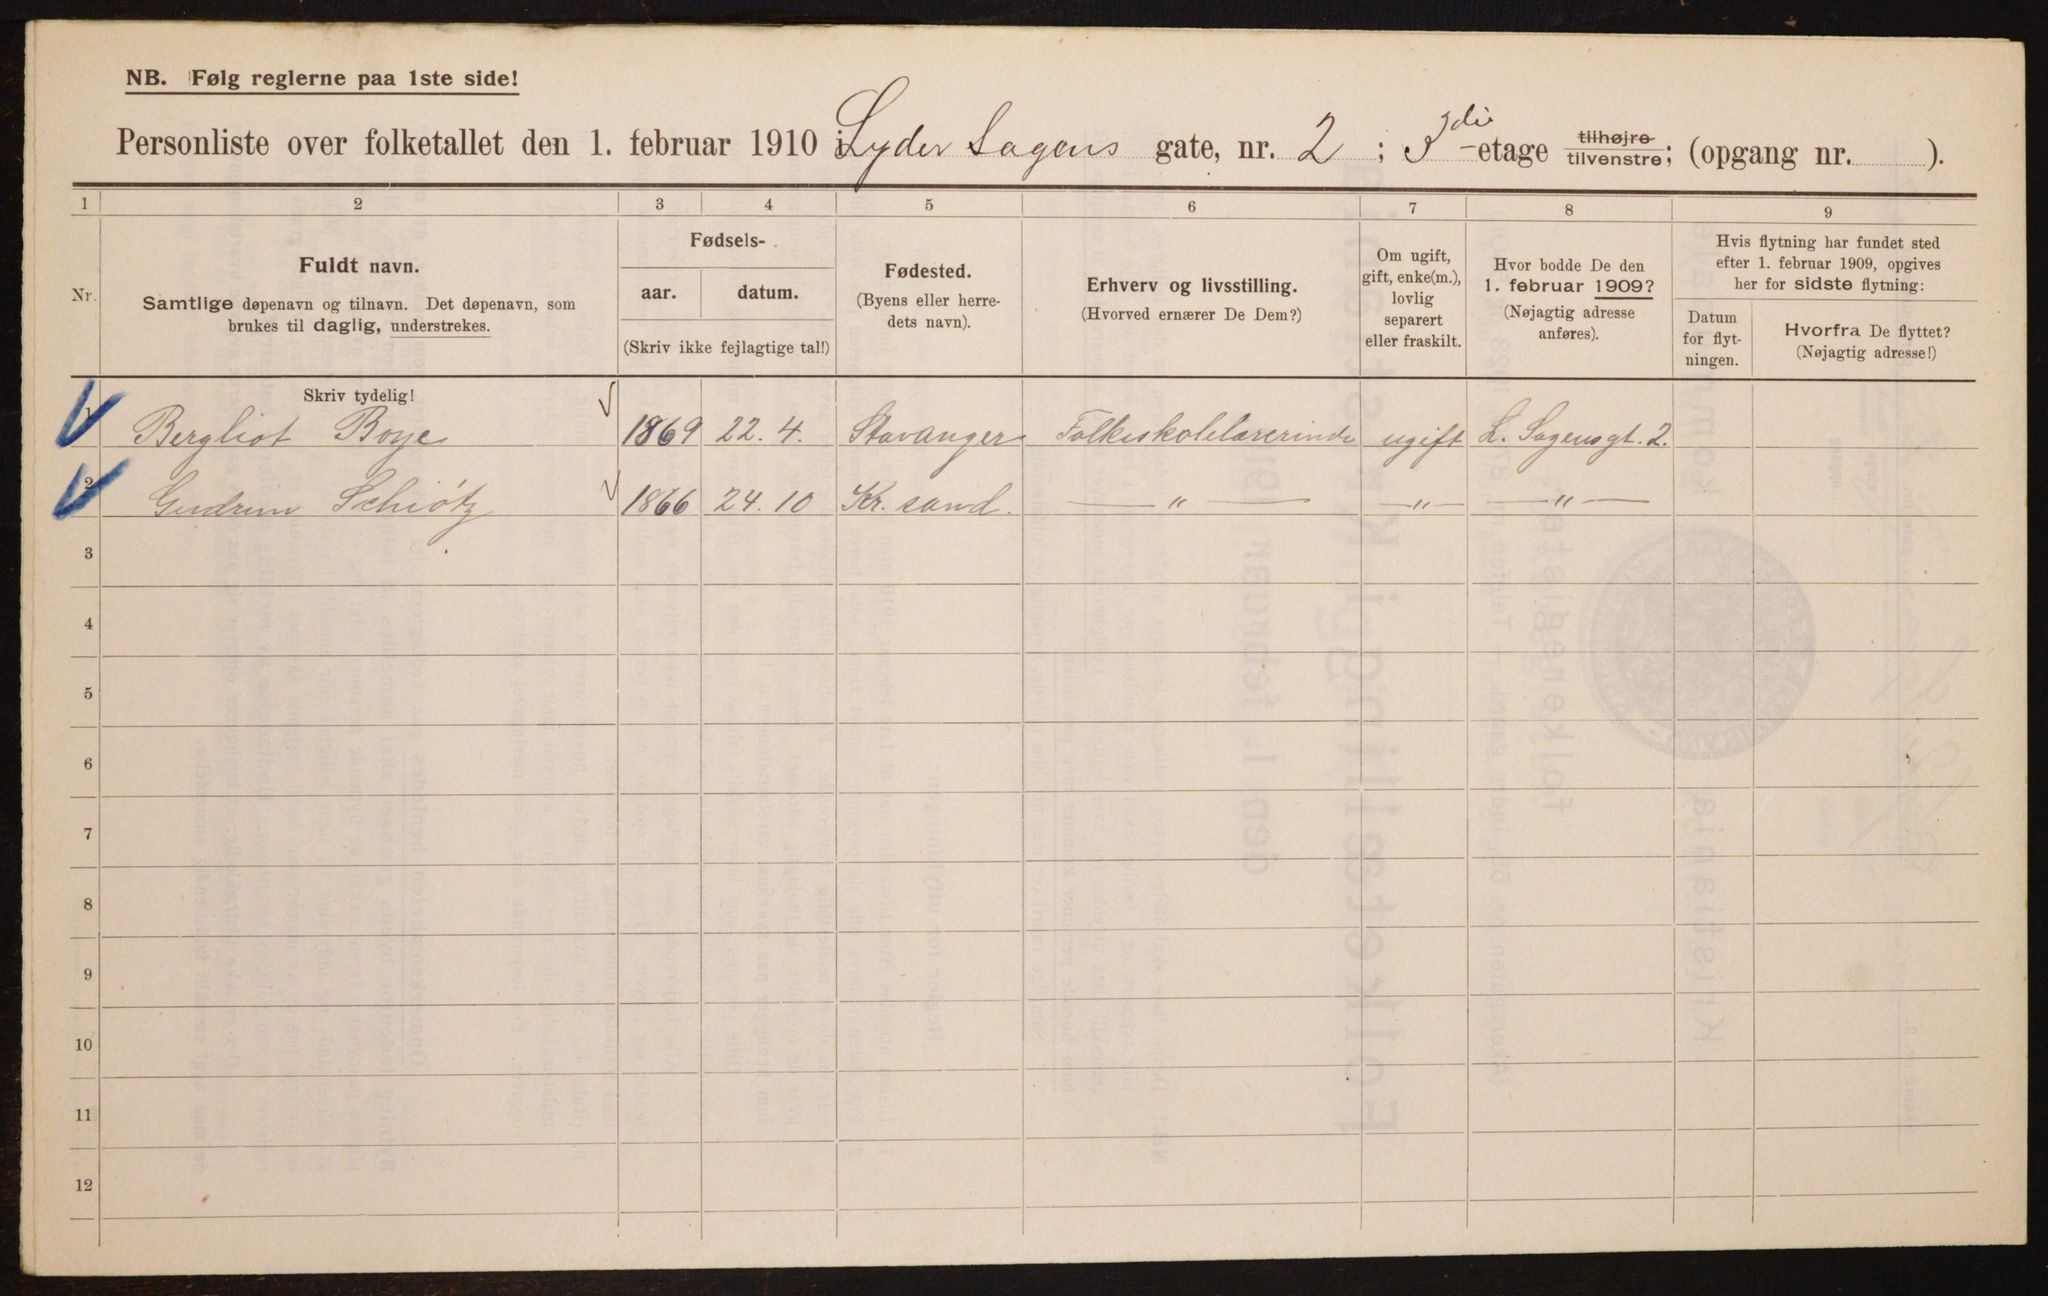 NB. Følg reglerne paa 1ste side!
Personliste over folketallet den 1. februar 1910 i Lyder Sagens gate, nr. 2 ; 3die -etage tilhøjre tilvenstre; (opgang nr. ).
1 2 3 4 5 6 7 8 9
Nr.
Fuldt navn.
Samtlige døpenavn og tilnavn. Det døpenavn, som
brukes til daglig, understrekes.
Fødsels-
aar. datum.
(Skriv ikke fejlagtige tal!)
Fødested.
(Byens eller herre-
dets navn).
Erhverv og livsstilling.
(Hvorved ernærer De Dem?)
Om ugift,
gift, enke(m.),
lovlig
separert
eller fraskilt.
Hvor bodde De den
1. februar 1909?
(Nøjagtig adresse
anføres).
Hvis flytning har fundet sted
efter 1. februar 1909, opgives
her for sidste flytning:
Datum
for flyt-
ningen.
Hvorfra De flyttet?
(Nøjagtig adresse!)
Skriv tydelig!
1 Bergliot Boye 1869 22.4. Stavanger Folkeskolelærerinde ugift L. Sagensgt. 2.
2 Gudrun Schiötz 1866 24.10 Kr. sand. — " — — " — — " —
3
4
5
6
7
8
9
10
11
12